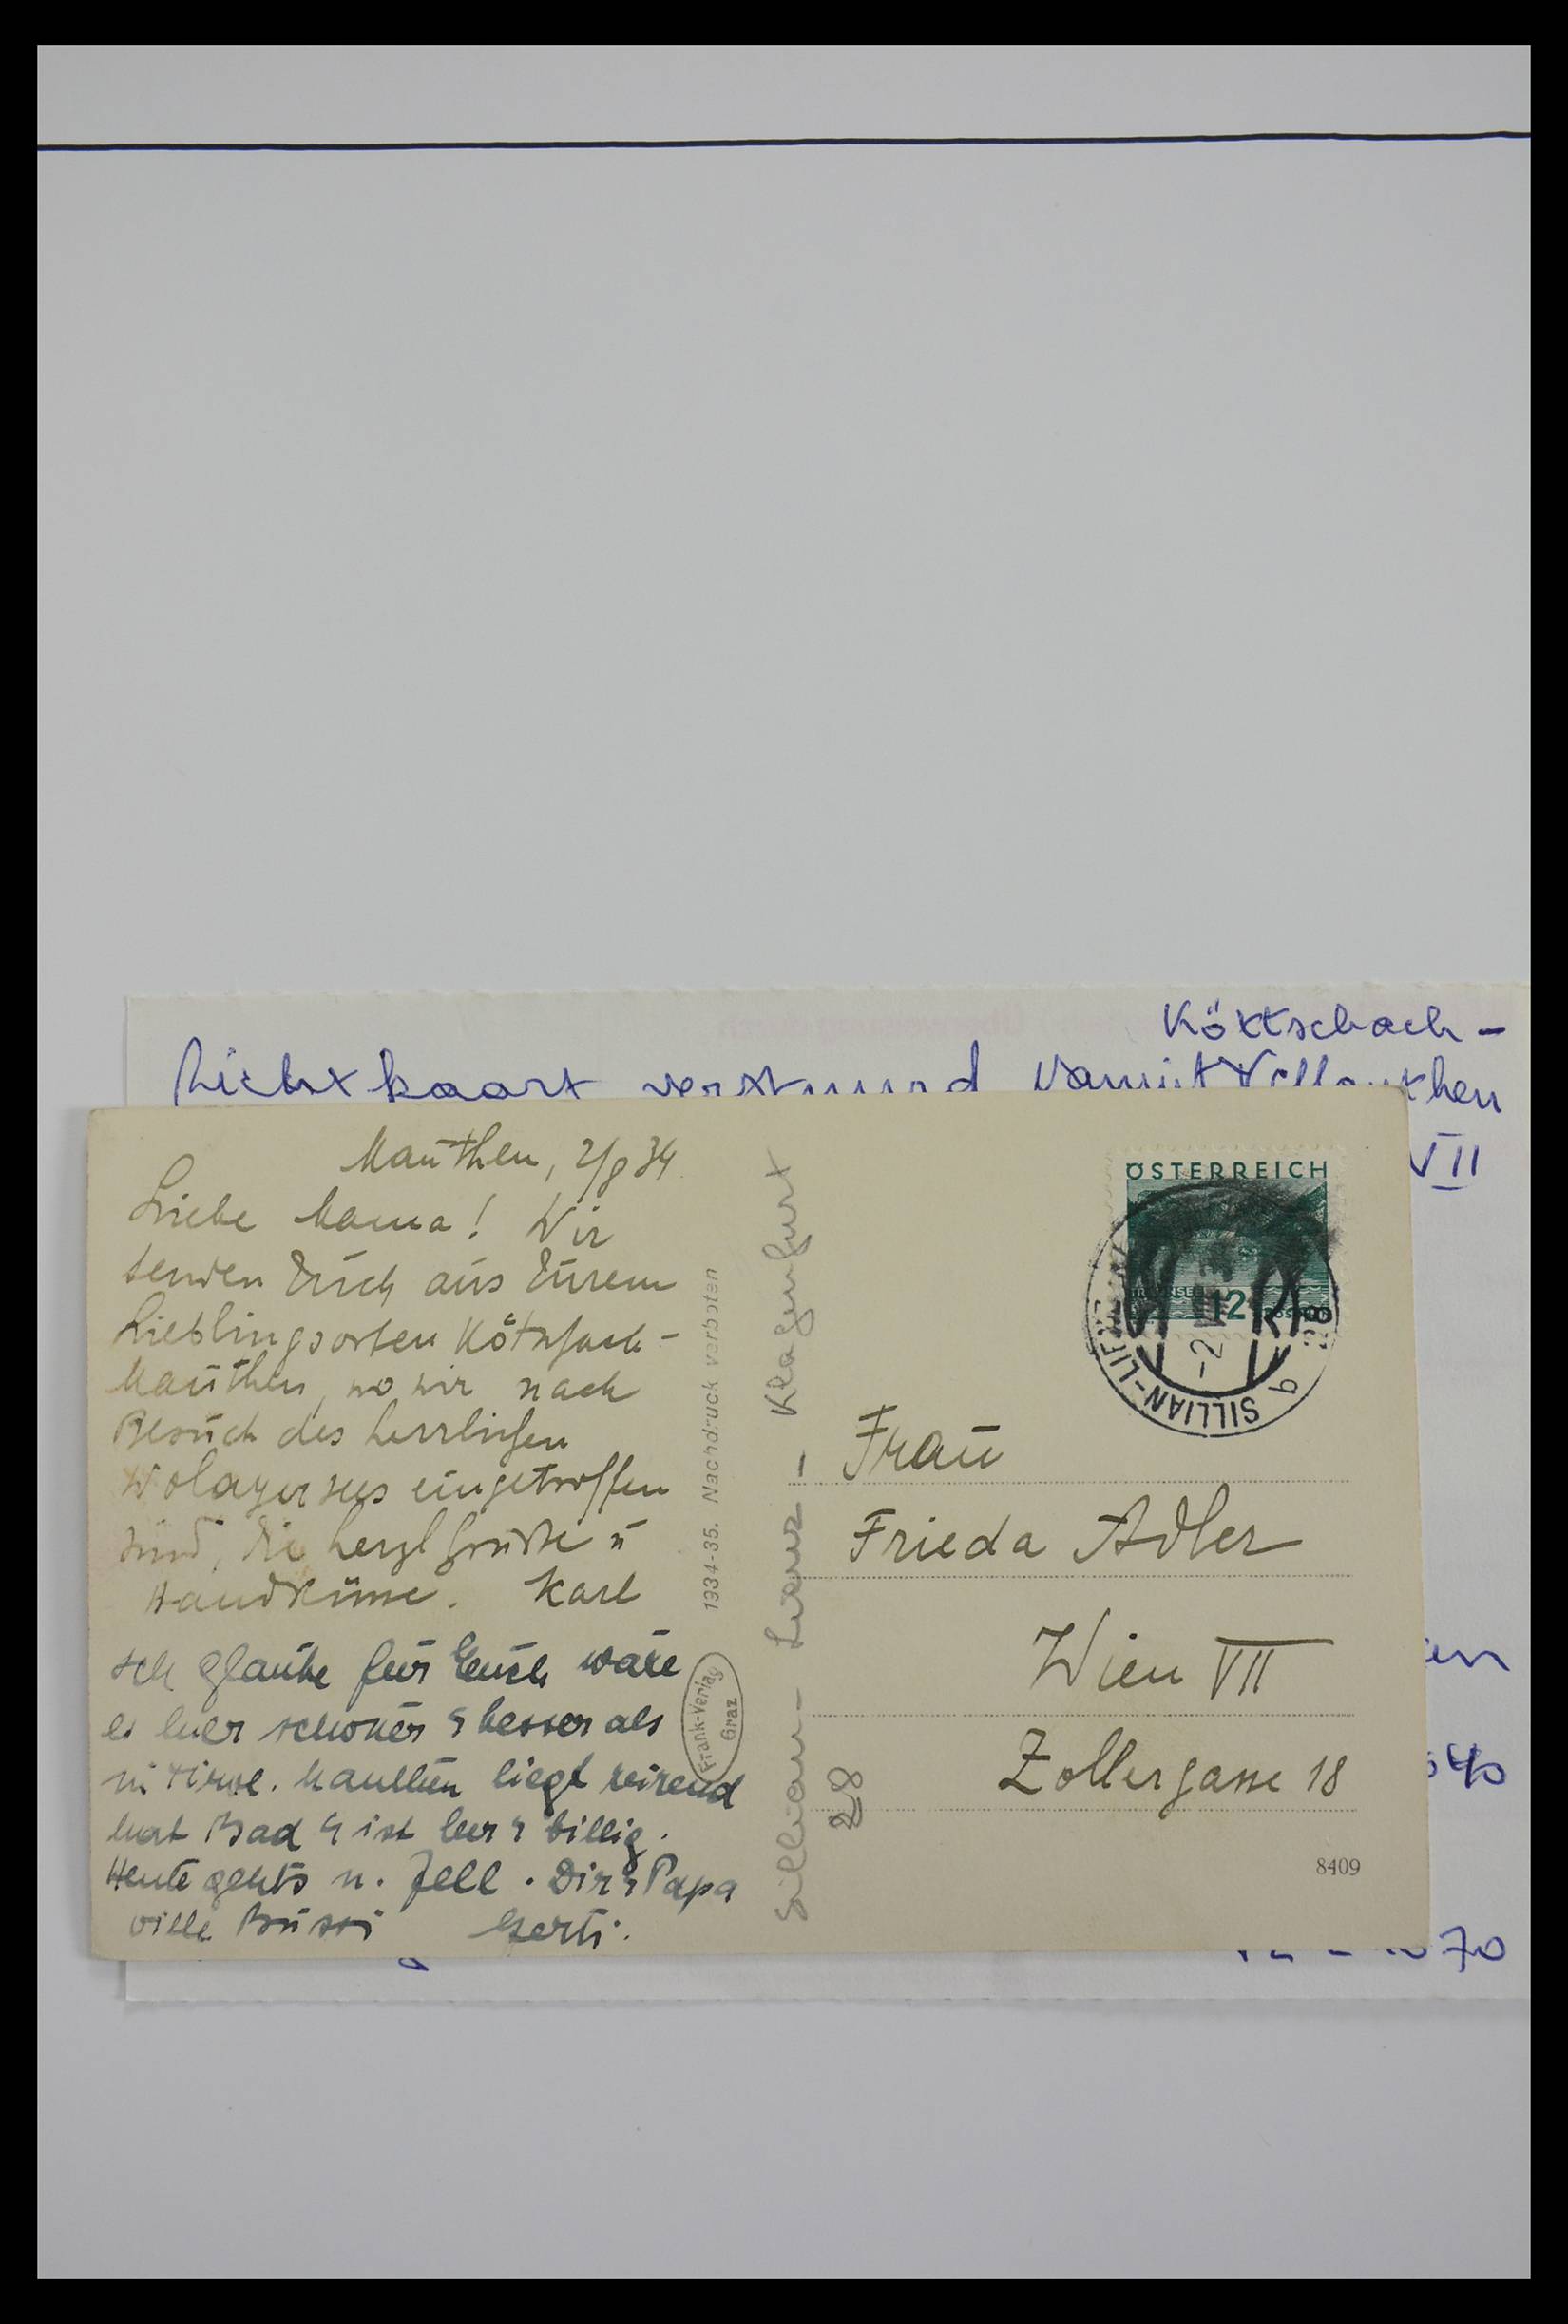 Köttschach-
Lichtkaart verstuurd vanuit
then
VII
en
70
Mauthen, 2/8 34
Liebe Mama! Wir
senden Euch aus Eurem
Lieblingsorten Kötschach-
Mauthen, wo wir nach
Besuch des herrlichen
Wolayersees eingetroffen
sind, die herzl Grüße u
Handküsse. Karl
Ich glaube für Euch wäre
es hier schöner & besser als
in Tirol. Mauthen liegt reizend
hat Bad & ist hier & billig.
Heute gehts n. Zell. Dir & Papa
viele Bussi Gerti.
1934-35. Nachdruck verboten
Frank-Verlag
Graz
Sillian - Lienz - Klagenfurt
28
ÖSTERREICH
12
SILLIAN-LIE
-2
b
Frau
Frieda Adler
Wien VII
Zollergasse 18
8409